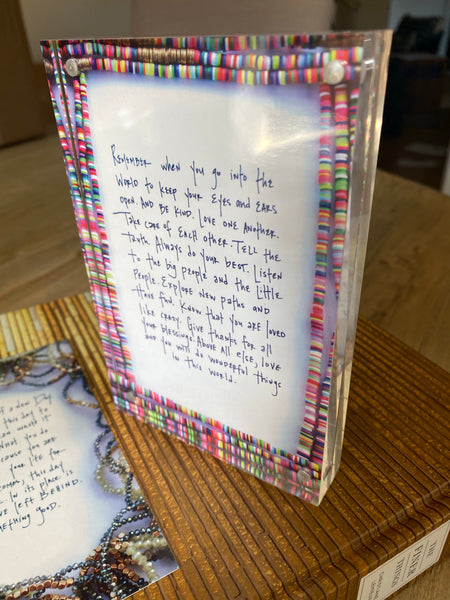 Remember when you go into the
world to keep your eyes and ears
open. And be kind. Love one another.
Take care of each other. Tell the
truth. Always do your best. Listen
to the big people and the little
people. Explore new paths and
have fun. Know that you are loved
like crazy. Give thanks for all
your blessings. Above all else, love
and you will do wonderful things
in this world.
of a new day
this day to
can waste it
What you do
because you are
your life for
comes, this day
in its place is
left behind.
something good.
THE